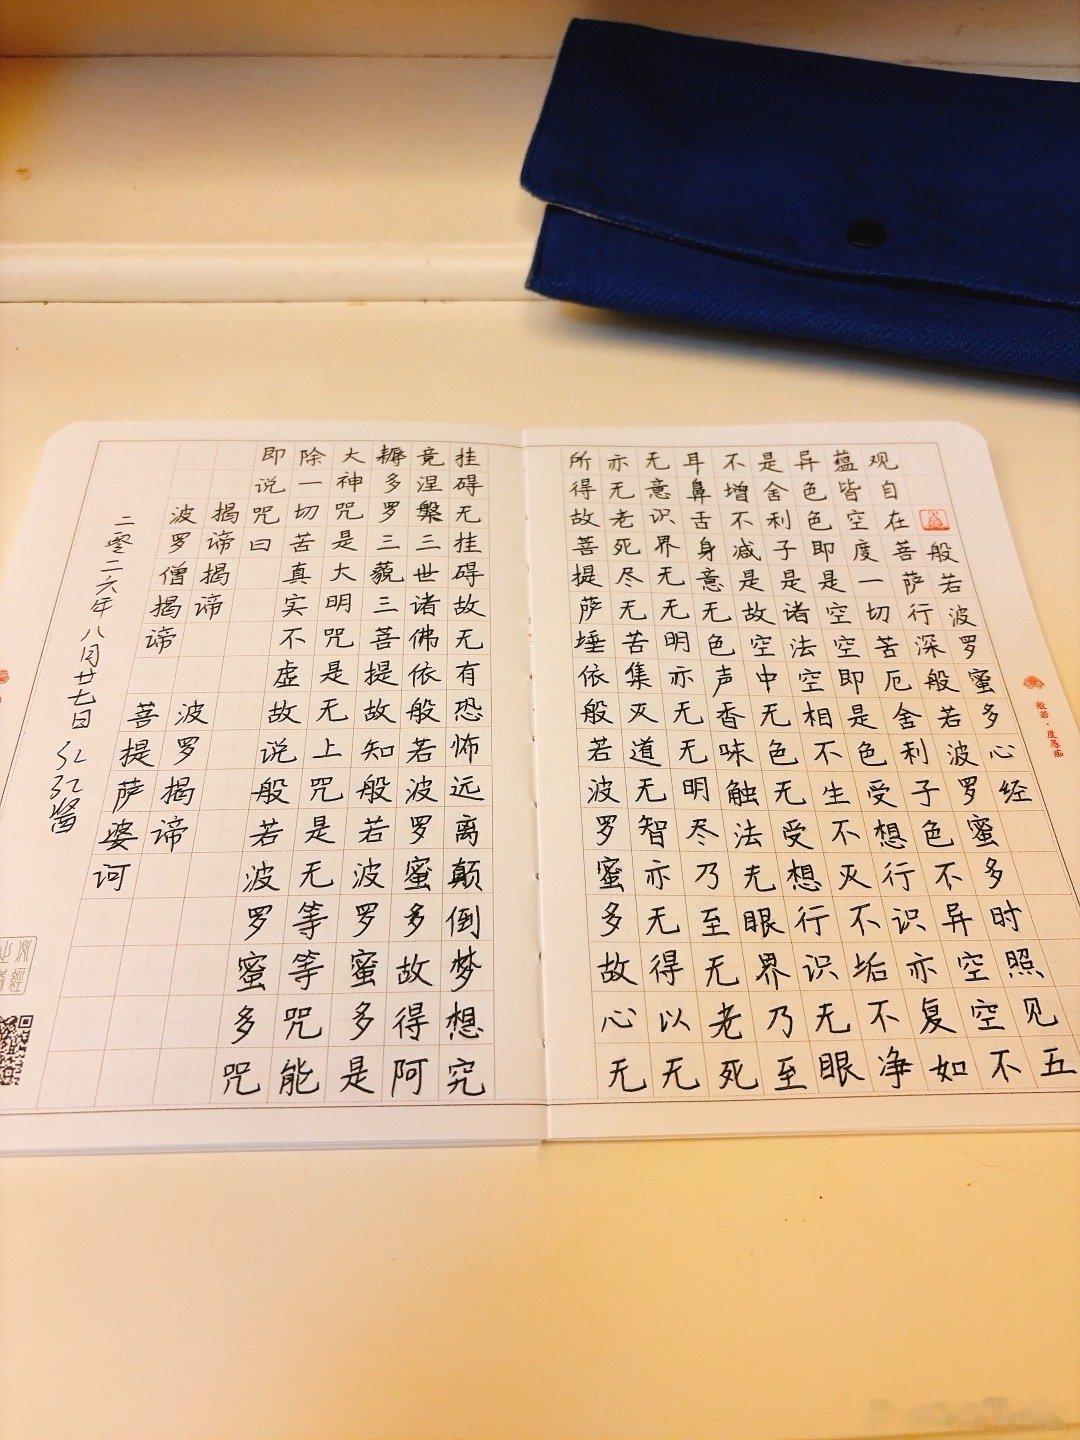 般若波罗蜜多心经
观自在菩萨行深般若波罗蜜多时照见五
蕴皆空度一切苦厄舍利子色不异空空不
异色色即是空空即是色受想行识亦复如
是舍利子是诸法空相不生不灭不垢不净
不增不减是故空中无色无受想行识无眼
耳鼻舌身意无色声香味触法无眼界乃至
无意识界无无明亦无无明尽乃至无老死
亦无老死尽无苦集灭道无智亦无得以无
所得故菩提萨埵依般若波罗蜜多故心无
挂碍无挂碍故无有恐怖远离颠倒梦想究
竟涅槃三世诸佛依般若波罗蜜多故得阿
耨多罗三藐三菩提故知般若波罗蜜多是
大神咒是大明咒是无上咒是无等等咒能
除一切苦真实不虚故说般若波罗蜜多咒
即说咒曰
揭谛揭谛 波罗揭谛
波罗僧揭谛 菩提萨婆诃
二零二六年八月廿七日 红红酱
般若·度愚痴